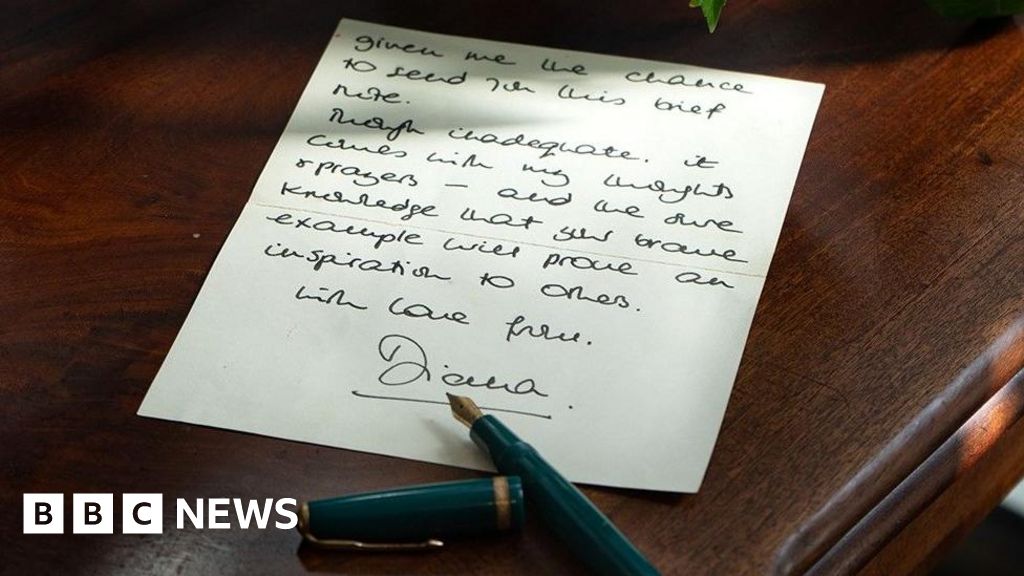 given me the chance
to send you this brief
note.
Though inadequate. it
comes with my thoughts
& prayers – and the sure
knowledge that your brave
example will prove an
inspiration to others.
with love from.
Diana.
BBC NEWS